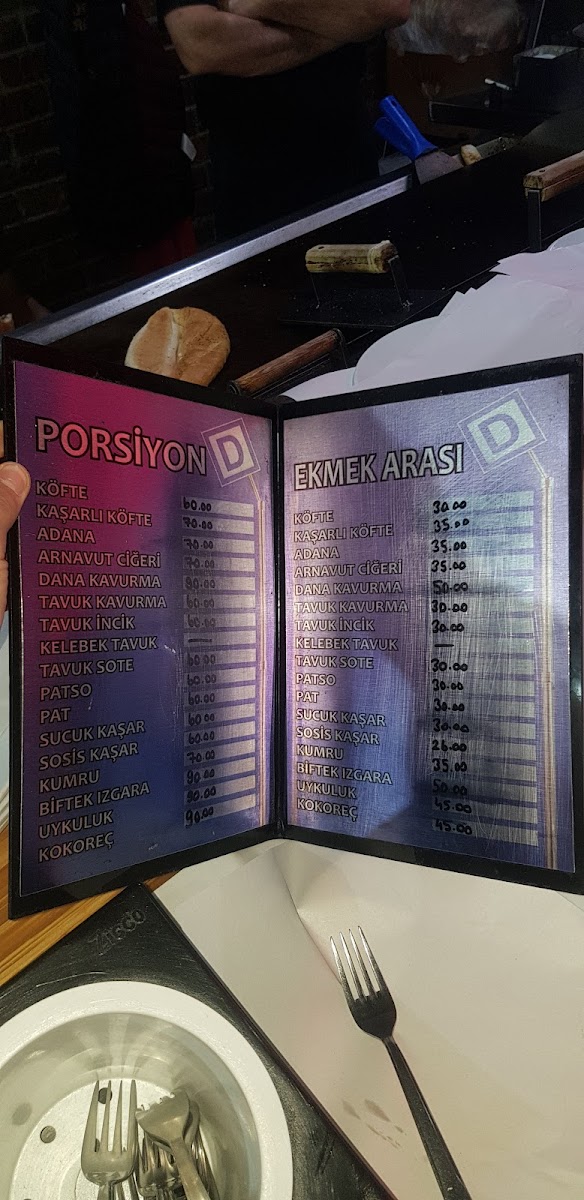 PORSİYON D
KÖFTE 60.00
KAŞARLI KÖFTE 70.00
ADANA 70.00
ARNAVUT CİĞERİ 70.00
DANA KAVURMA
TAVUK KAVURMA 60.00
TAVUK İNCİK 60.00
KELEBEK TAVUK —
TAVUK SOTE 60.00
PATSO 60.00
PAT 60.00
SUCUK KAŞAR 60.00
SOSİS KAŞAR 60.00
KUMRU 70.00
BİFTEK IZGARA 90.00
UYKULUK 90.00
KOKOREÇ 90.00
EKMEK ARASI D
KÖFTE 30.00
KAŞARLI KÖFTE 35.00
ADANA 35.00
ARNAVUT CİĞERİ 35.00
DANA KAVURMA 50.00
TAVUK KAVURMA 30.00
TAVUK İNCİK 30.00
KELEBEK TAVUK —
TAVUK SOTE 30.00
PATSO 30.00
PAT 30.00
SUCUK KAŞAR 30.00
SOSİS KAŞAR
KUMRU 35.00
BİFTEK IZGARA 50.00
UYKULUK 45.00
KOKOREÇ 45.00